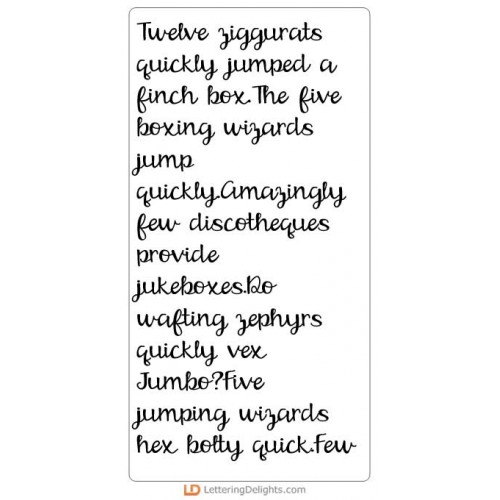 Twelve ziggurats
quickly jumped a
finch box.The five
boxing wizards
jump
quickly.Amazingly
few discotheques
provide
jukeboxes.Do
wafting zephyrs
quickly vex
Jumbo?Five
jumping wizards
hex bolty quick.Few
LD LetteringDelights.com